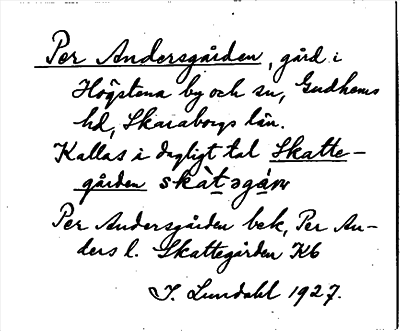 Per Andersgården, gård i
Högstena by och sn, Gudhems
hd, Skaraborgs län.
Kallas i dagligt tal Skatte-
gården skàtəgáṇ
Per Andersgården bek, Per An-
ders l. Skattegården K6
I. Lundahl 1927.